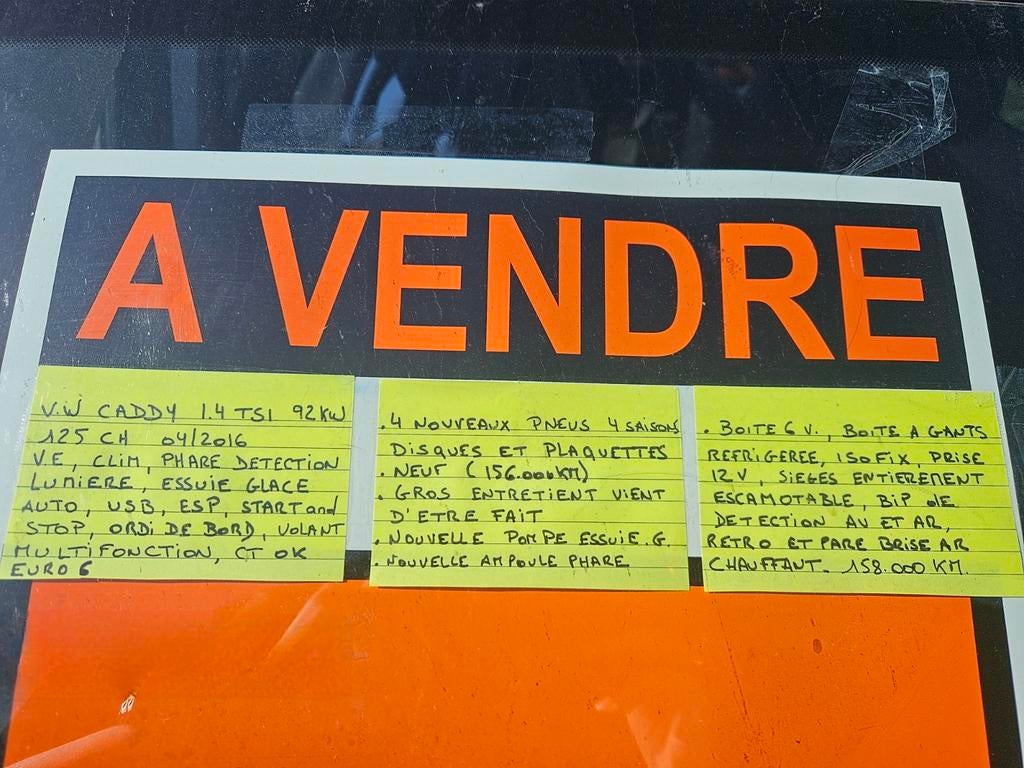 A VENDRE
V.W CADDY 1.4 TSI 92KW
125 CH 04/2016
V.E, CLIM, PHARE DETECTION
LUMIERE, ESSUIE GLACE
AUTO, USB, ESP, START and
STOP, ORDI DE BORD, VOLANT
MULTIFONCTION, CT OK
EURO 6
. 4 NOUVEAUX PNEUS 4 SAISONS
DISQUES ET PLAQUETTES
. NEUF (156.000KM)
. GROS ENTRETIENT VIENT
D'ETRE FAIT
. NOUVELLE POMPE ESSUIE.G.
. NOUVELLE AMPOULE PHARE
. BOITE 6 V., BOITE A GANTS
REFRIGEREE, ISOFIX, PRISE
12V, SIEGES ENTIEREMENT
ESCAMOTABLE, BIP de
DETECTION AV ET AR,
RETRO ET PARE BRISE AR
CHAUFFANT. 158.000 KM.